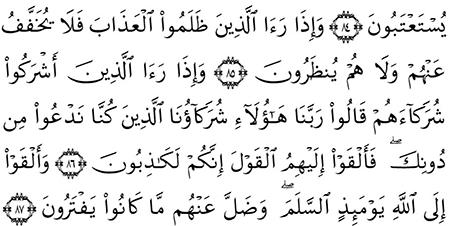 يُسْتَعْتَبُونَ ٨٤ وَإِذَا رَءَا الَّذِينَ ظَلَمُوا۟ الْعَذَابَ فَلَا يُخَفَّفُ
عَنْهُمْ وَلَا هُمْ يُنظَرُونَ ٨٥ وَإِذَا رَءَا الَّذِينَ أَشْرَكُوا۟
شُرَكَآءَهُمْ قَالُوا۟ رَبَّنَا هَـٰٓؤُلَآءِ شُرَكَآؤُنَا الَّذِينَ كُنَّا نَدْعُوا۟ مِن
دُونِكَ ۖ فَأَلْقَوْا۟ إِلَيْهِمُ الْقَوْلَ إِنَّكُمْ لَكَـٰذِبُونَ ٨٦ وَأَلْقَوْا۟
إِلَى اللَّهِ يَوْمَئِذٍ السَّلَمَ ۖ وَضَلَّ عَنْهُم مَّا كَانُوا۟ يَفْتَرُونَ ٨٧